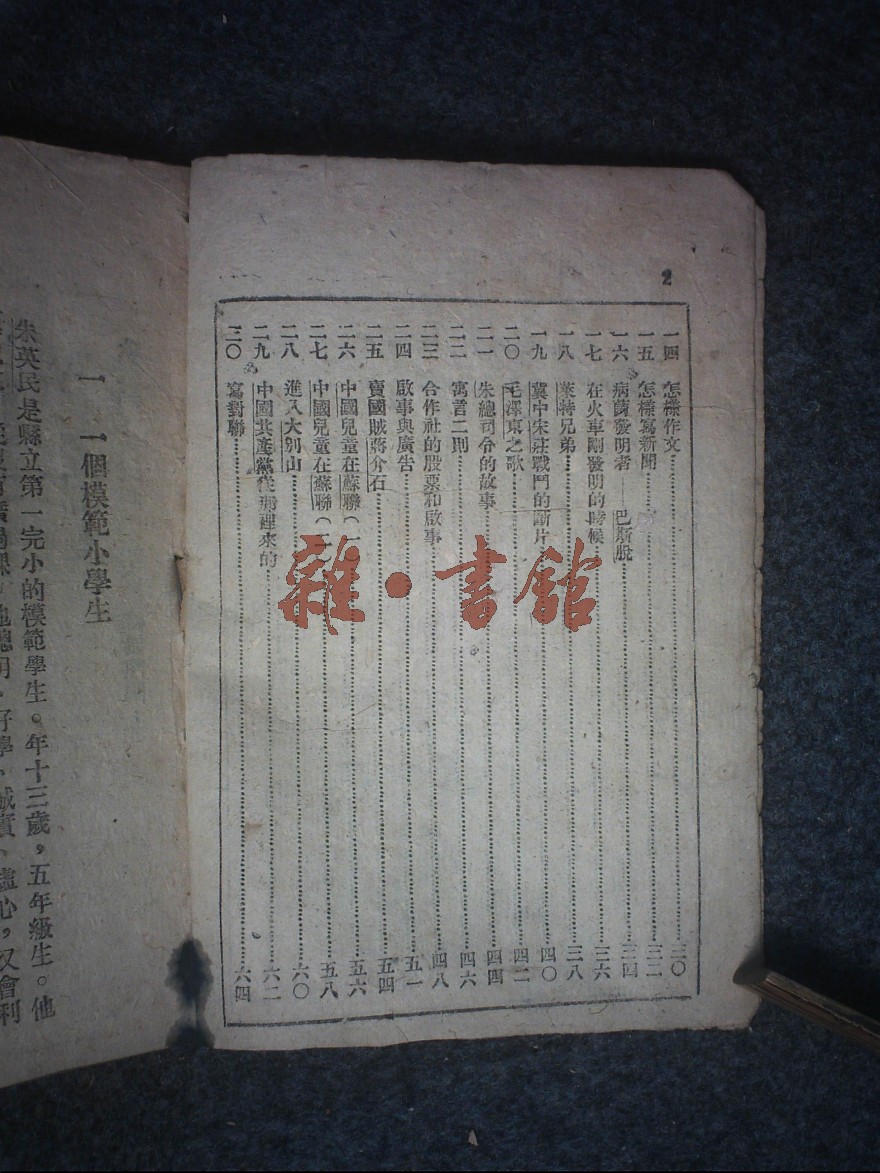 2
一四 怎樣作文……三〇
一五 怎樣寫新聞……三二
一六 病菌發明者——巴斯脫……三四
一七 在火車剛發明的時候……三六
一八 萊特兄弟……三八
一九 冀中宋莊戰鬥的斷片……四〇
二〇 毛澤東之歌……四二
二一 朱總司令的故事……四四
二二 寓言二則……四六
二三 合作社的股票和啟事……四八
二四 啟事與廣告……五一
二五 賣國賊蔣介石……五四
二六 中國兒童在蘇聯(一)……五六
二七 中國兒童在蘇聯(二)……五八
二八 進入大別山……六〇
二九 中國共產黨從那裡來的……六二
三〇 寫對聯……六四
一 一個模範小學生
朱英民是縣立第一完小的模範學生。年十三歲，五年級生。他
聰明、好學、誠實、虛心，又會利
雜·書館